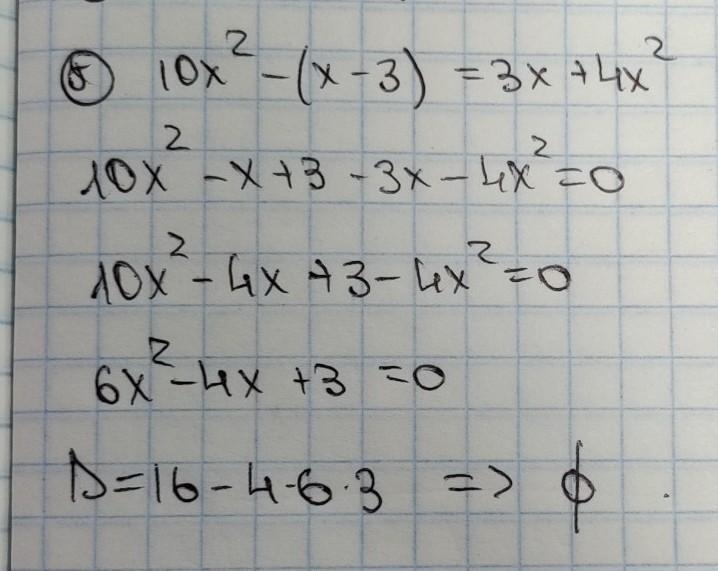 ⑤ 10x² - (x - 3) = 3x + 4x²
10x² - x + 3 - 3x - 4x² = 0
10x² - 4x + 3 - 4x² = 0
6x² - 4x + 3 = 0
D = 16 - 4·6·3 => ϕ.